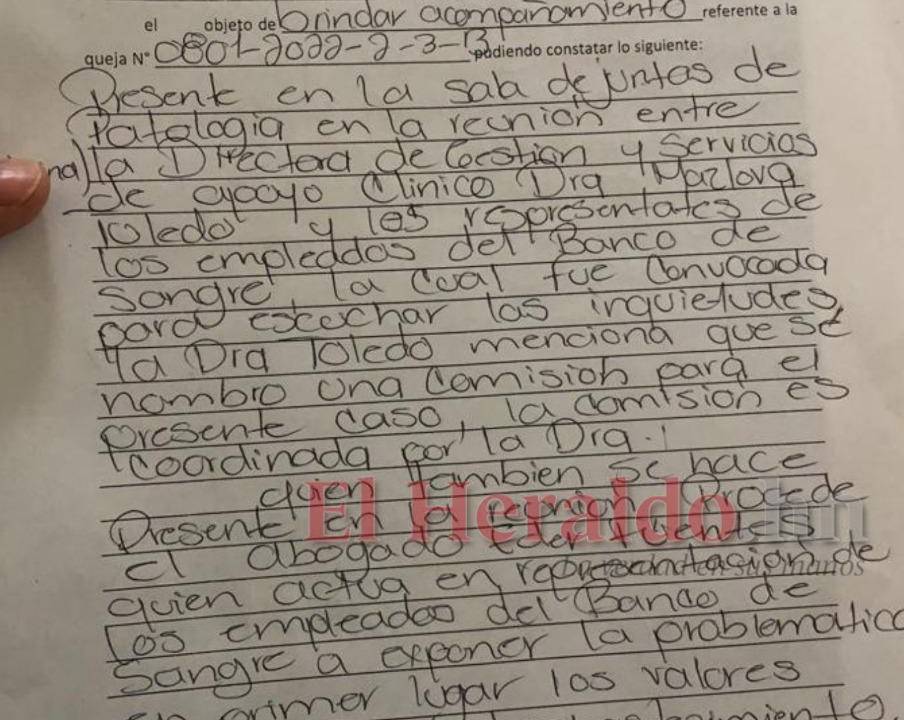 el objeto de brindar acompañamiento referente a la
queja N° 0801-2022-2-3-13 pudiendo constatar lo siguiente:
Presente en la sala de juntas de
Patologia en la reunión entre
na) la Directora de Gestion y Servicios
de apoyo Clinico Dra Marlova
Toledo y los representates de
los empleddos del Banco de
Sangre, la cual fue Convocada
para escuchar las inquietudes,
la Dra Toledo menciona que se
nombro una Comision para el
presente caso, la comision es
Coordinada por la Dra.
quien tambien se hace
Presente en la reunion, Procede
el abogado Eder Fuentes
quien actua en representasion de
los empleados del Banco de
Sangre a exponer la problematica
en primer lugar los valores
El Heraldo.hn